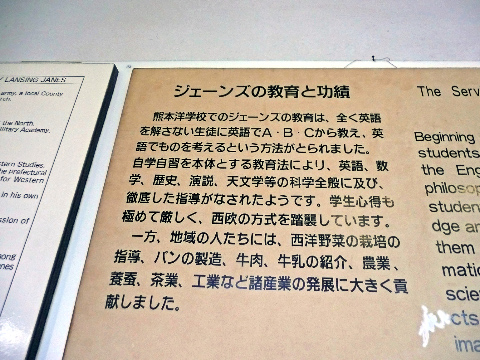 Y LANSING JANES
army, a local County
rch.
the North.
ilitary Academy,
stern Studies.
he prefectural
for Western
in his own
ssion of
ong
mes
ジェーンズの教育と功績
熊本洋学校でのジェーンズの教育は、全く英
語を解さない生徒に英語でA・B・Cから教え、英
語でものを考えるという方法がとられました。
自学自習を本体とする教育法により、英語、数
学、歴史、演説、天文学等の科学全般に及び、
徹底した指導がなされたようです。学生心得も
極めて厳しく、西欧の方式を踏襲しています。
一方、地域の人たちには、西洋野菜の栽培の
指導、パンの製造、牛肉、牛乳の紹介、農業、
養蚕、茶業、工業など諸産業の発展に大きく貢
献しました。
The Serv
Beginning
students
the Eng
philosop
studen
dge an
them
matic
scien
cts
ima